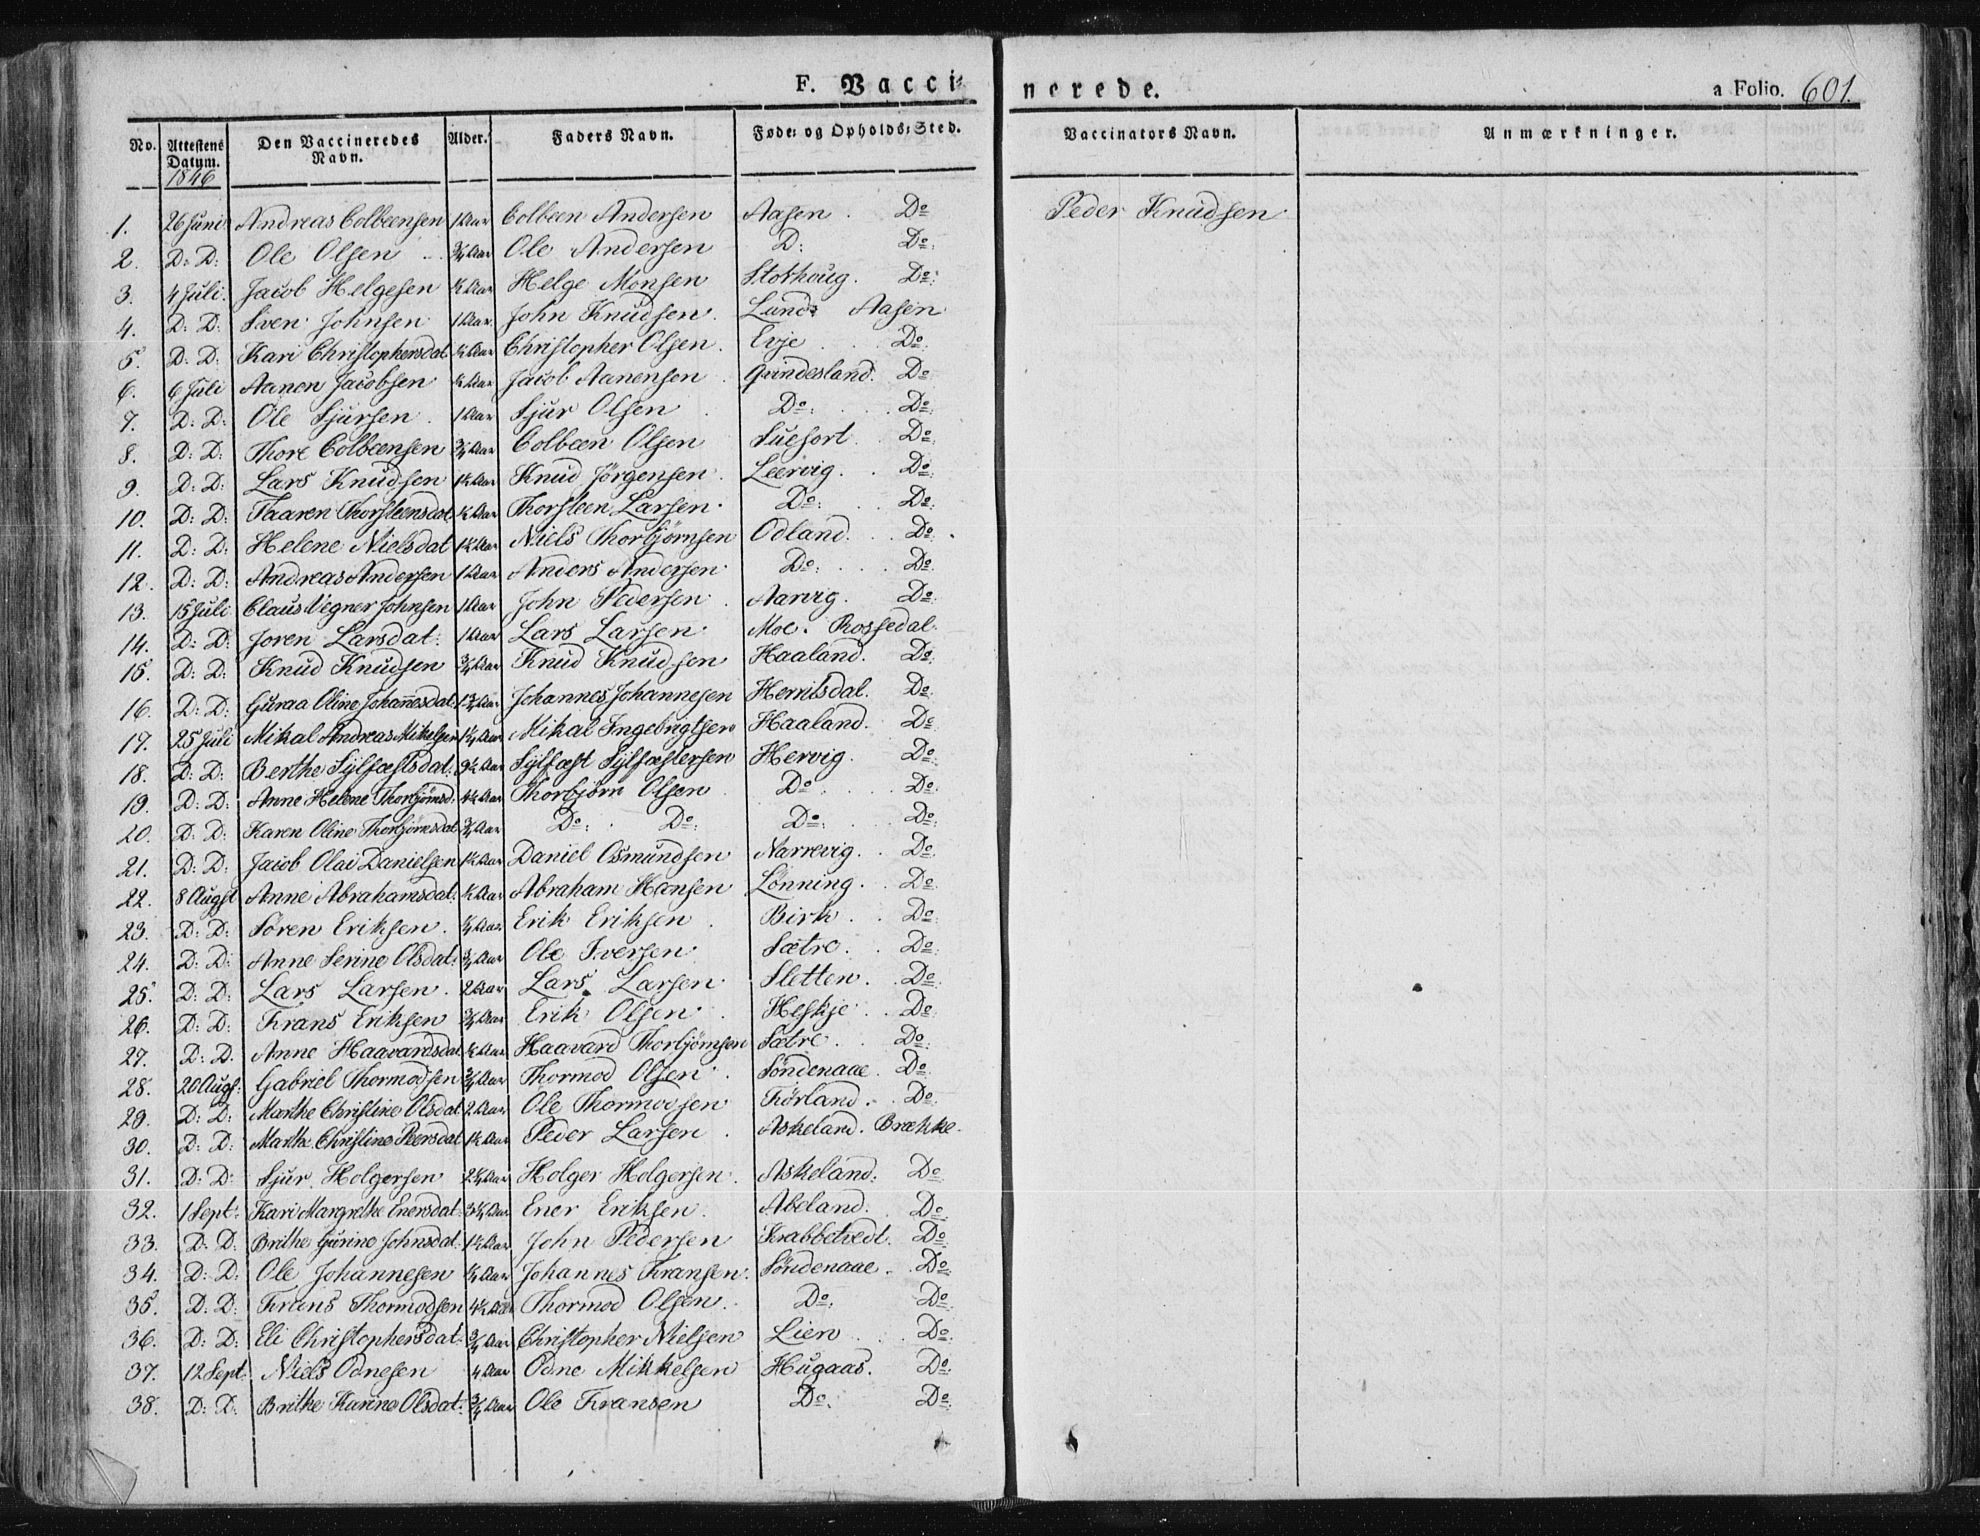 F. Vaccinerede. a Folio. 601.
No. Attestens Datum. Den Vaccineredes Navn. Alder. Faders Navn. Føde- og Opholds-Sted. Vaccinators Navn. Anmærkninger.
1846
1. 26 Juni Andreas Colbeensen 1 Aar Colbeen Andersen Aasen. Do Peder Knudsen
2. D: D: Ole Olsen ¾ Aar Ole Andersen D: Do:
3. 4 Juli. Jacob Helgesen ½ Aar Helge Monsen Stokhoug. Do:
4. D: D: Sven Johnsen 1 Aar John Knudsen. Lunds Aasen
5. D: D: Kari Christophersdat Aar Christopher Olsen. Evje Do.
6. 6 Juli Aanen Jacobsen ½ Aar Jacob Aanensen Qvindesland. Do
7. D: D: Ole Sjursen 1 Aar Sjur Olsen Do: Do:
8. D: D: Thore Colbeensen ¾ Aar Colbeen Olsen Suefort. Do:
9. D: D: Lars Knudsen 1½ Aar Knud Jørgensen. Leervig. Do:
10. D: D: Taaren Thorsteensdat. ½ Aar Thorsteen Larsen. Do: Do:
11. D: D: Helene Nielsdat 1½ Aar Niels Thorbjørnsen Odland. Do:
12. D: D: Andreas Andersen 1 Aar Anders Andersen Do: Do:
13. 15 Juli Claus Vegner Johnsen 1 Aar John Pedersen Aarvig. Do:
14. D: D: Joren Larsdat: 1 Aar Lars Larsen Moe. Rossedal.
15. D: D: Knud Knudsen ¾ Aar Knud Knudsen Haaland. Do:
16. D: D: Guraa Oline Johañesdat 1¾ Aar Johannes Johannesen Herritsdal. Do:
17. 25 Juli Mikal Andreas Mikelsen 1¼ Aar Mikal Ingebrigtsen Haaland. Do
18. D: D: Berthe Sylfæstsdat. 9½ Aar Sylfæst Sylfæstersen Hervig. Do:
19. D: D: Anne Helene Thorbjørnsd. 4½ Aar Thorbjørn Olsen Do Do:
20. D: D: Karen Oline Thorbjørnsdat ¾ Aar Do: Do: Do: Do:
21. D: D: Jacob Olai Danielsen 1½ Aar Daniel Osmundsen Narrevig. Do:
22. 8 Augst Anne Abrahamsdat: ½ Aar Abraham Hansen Lønning. Do:
23. D: D: Søren Eriksen. Aar Erik Eriksen. Birk. Do:
24. D: D: Anne Serine Olsdat: ¾ Aar Ole Iversen Sætre. Do:
25. D: D: Lars Larsen. 2 Aar Lars Larsen Sletten. Do:
26. D: D: Frans Eriksen ¾ Aar Erik Olsen. Heskje. Do:
27. D: D. Anne Haavardsdat ½ Aar Haavard Thorbjørnsen Sætre. Do:
28. 20 Augs: Gabriel Thormodsen ¾ Aar Thormod Olsen. Søndenaae. Do
29. D: D: Marthe Christine Olsdat 2 Aar Ole Thormodsen Førland. Do:
30. D: D: Marthe Christine Peersdat 1½ Aar Peder Larsen. Askeland. Brække.
31. D: D: Sjur Holgersen 2¼ Aar Holger Holgersen. Askeland: Do
32. 1 Sept: Kari Margrethe Enersdat: 3¼ Aar Ener Eriksen. Abeland. Do:
33. D: D: Brithe Gurine Johnsdat. 1½ Aar John Pedersen Krabbetvedt. Do:
34. D: D: Ole Johannesen Aar Johannes Fransen. Søndenaae. Do:
35. D. D: Frans Thormodsen 4½ Aar Thormod Olsen. Do: Do:
36. D: D: Eli Christophersdat: ¾ Aar Christopher Nielsen Lien Do.
37. 12 Sept Niels Odnesen 4 Aar Odne Mikkelsen Hugaas. Do:
38. D: D. Brithe Karine Olsdat: ¾ Aar Ole Fransen Do: Do: